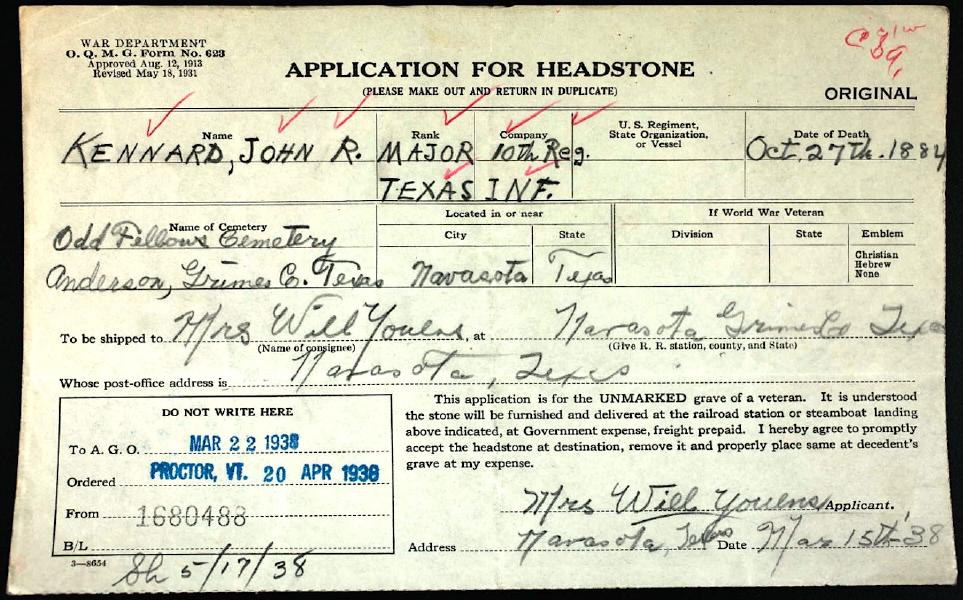 WAR DEPARTMENT
O. Q. M. G. Form No. 623
Approved Aug. 12, 1913
Revised May 18, 1931
APPLICATION FOR HEADSTONE
(PLEASE MAKE OUT AND RETURN IN DUPLICATE)
ORIGINAL
Name Rank Company U. S. Regiment, State Organization, or Vessel Date of Death
KENNARD, JOHN R. MAJOR 10th Reg. Oct. 27th. 1884
TEXAS INF.
Name of Cemetery Located in or near If World War Veteran
City State Division State Emblem
Odd Fellows Cemetery
Christian
Hebrew
None
Anderson, Grimes Co. Texas Navasota Texas
To be shipped to Mrs Will Youens, at Navasota Grimes Co Texas
(Name of consignee) (Give R. R. station, county, and State)
Whose post-office address is Navasota, Texas
DO NOT WRITE HERE
To A. G. O. MAR 22 1938
Ordered PROCTOR, VT. 20 APR 1938
From 1680488
B/L
3—8654
Sh 5/17/38
This application is for the UNMARKED grave of a veteran. It is understood
the stone will be furnished and delivered at the railroad station or steamboat landing
above indicated, at Government expense, freight prepaid. I hereby agree to promptly
accept the headstone at destination, remove it and properly place same at decedent's
grave at my expense.
Mrs Will Youens Applicant.
Address Navasota, Texas Date Mar 15th '38